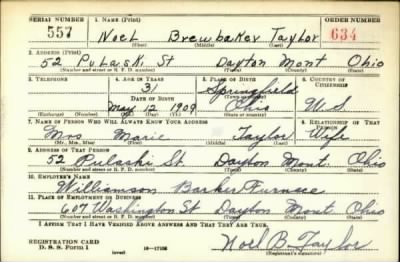 SERIAL NUMBER 1. NAME (Print) ORDER NUMBER
557 Noel Brewbaker Taylor 634
(First) (Middle) (Last)
2. ADDRESS (Print)
52 Pulaski St Dayton Mont Ohio
(Number and street or R. F. D. number) (Town) (County) (State)
3. TELEPHONE 4. AGE IN YEARS 5. PLACE OF BIRTH 6. COUNTRY OF CITIZENSHIP
31 Springfield
DATE OF BIRTH (Town or county)
May 12 1909 Ohio U S
(Exchange) (Number) (Mo.) (Day) (Yr.) (State or country)
7. NAME OF PERSON WHO WILL ALWAYS KNOW YOUR ADDRESS 8. RELATIONSHIP OF THAT PERSON
Mrs Marie Taylor Wife
(Mr., Mrs., Miss) (First) (Middle) (Last)
9. ADDRESS OF THAT PERSON
52 Pulaski St Dayton Mont. Ohio
(Number and street or R. F. D. number) (Town) (County) (State)
10. EMPLOYER'S NAME
Williamson Barker Furnace
11. PLACE OF EMPLOYMENT OR BUSINESS
607 Washington St Dayton Mont Ohio
(Number and street or R. F. D. number) (Town) (County) (State)
I AFFIRM THAT I HAVE VERIFIED ABOVE ANSWERS AND THAT THEY ARE TRUE.
REGISTRATION CARD
D. S. S. Form 1 (over) Noel B. Taylor
(Registrant's signature)